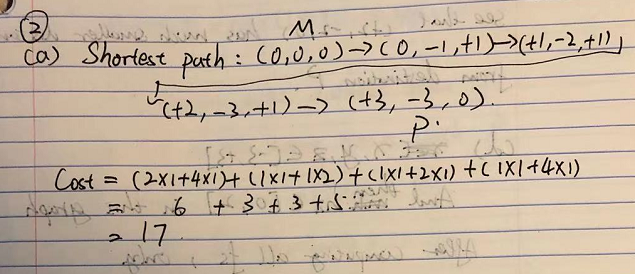 ②
M
(a) Shortest path : (0,0,0) → (0,-1,+1) → (+1,-2,+1)
(+2,-3,+1) → (+3,-3,0).
P.
Cost = (2x1+4x1)+(1x1+1x2)+(1x1+2x1)+(1x1+4x1)
= 6 + 3 + 3 + 5
= 17